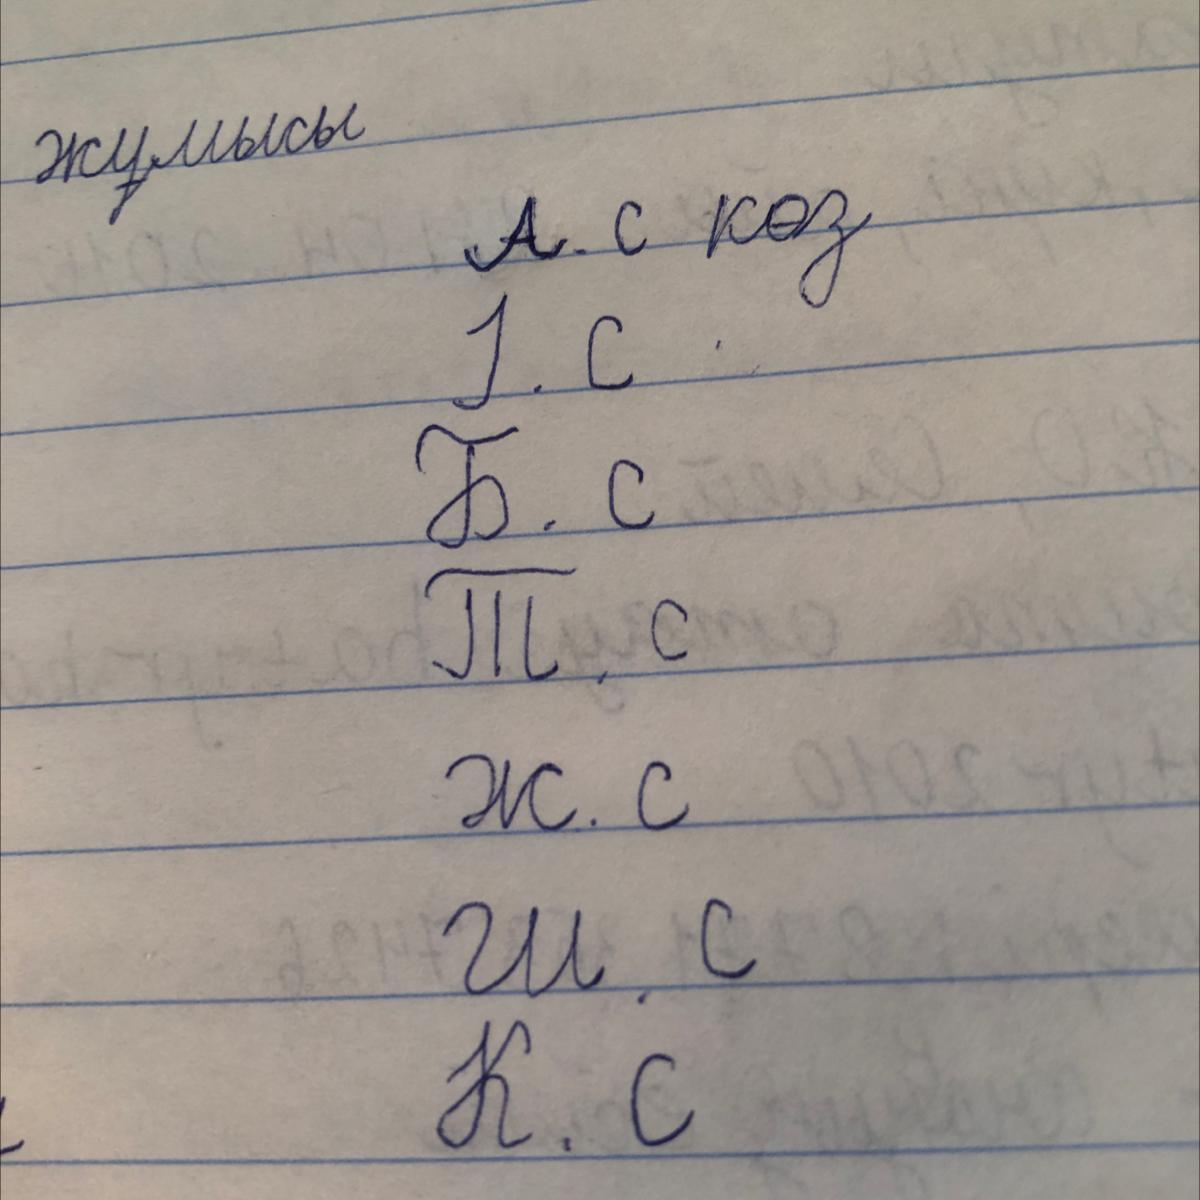 жұмысы
А. с көз
І. с
Б. с
Т. с
Ж. с
Ш. с
К. с